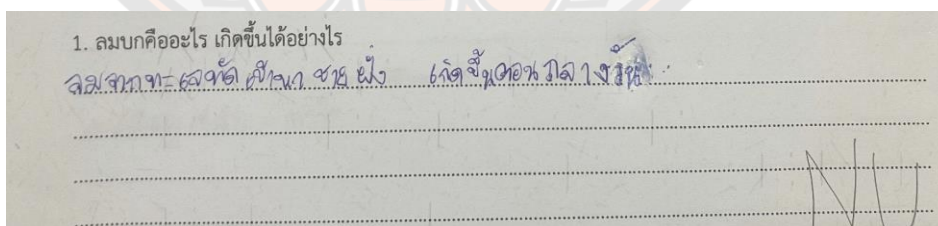 1. ลมบกคืออะไร เกิดขึ้นได้อย่างไร
ลมจากทะเลพัดเข้ามา ชายฝั่ง เกิดขึ้นตอนกลางวัน
NU